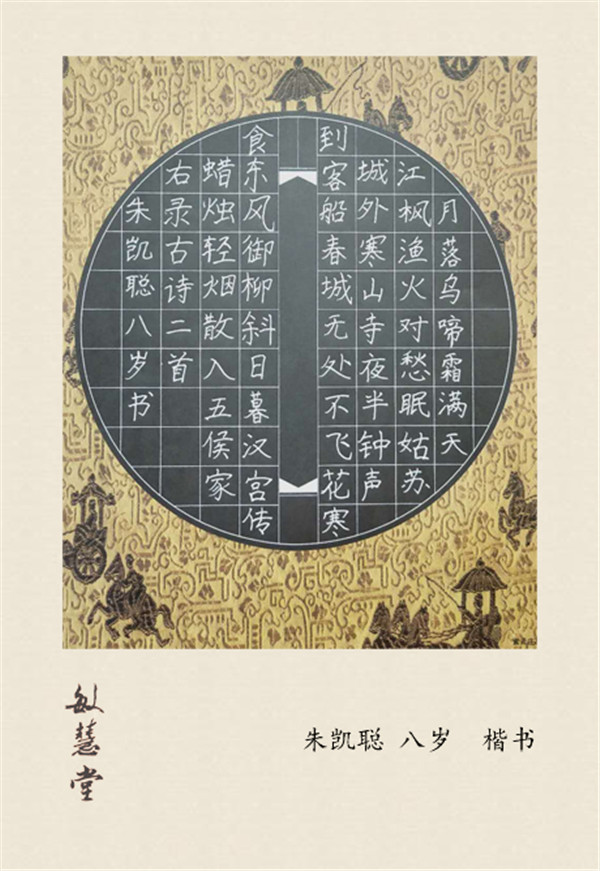 月落乌啼霜满天
江枫渔火对愁眠姑苏
城外寒山寺夜半钟声
到客船春城无处不飞花寒
食东风御柳斜日暮汉宫传
蜡烛轻烟散入五侯家
右录古诗二首
朱凯聪八岁书
敏慧堂
朱凯聪 八岁 楷书